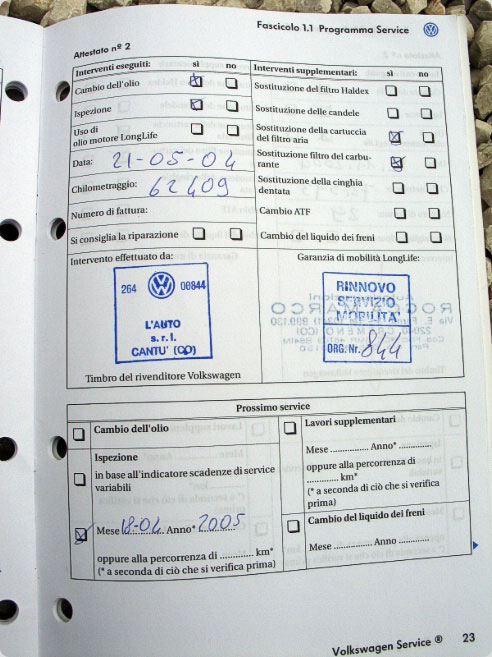 Fascicolo 1.1 Programma Service
Attestato nº 2
Interventi eseguiti: sì no
Cambio dell'olio
Ispezione
Uso di
olio motore LongLife
Data: 21-05-04
Chilometraggio: 62409
Numero di fattura:
Si consiglia la riparazione
Interventi supplementari: sì no
Sostituzione del filtro Haldex
Sostituzione delle candele
Sostituzione della cartuccia
del filtro aria
Sostituzione filtro del carbu-
rante
Sostituzione della cinghia
dentata
Cambio ATF
Cambio del liquido dei freni
Intervento effettuato da:
264 00844
L'AUTO
s.r.l.
CANTU' (CO)
Timbro del rivenditore Volkswagen
Garanzia di mobilità LongLife:
RINNOVO
SERVIZIO
MOBILITA'
ORG. Nr. 844
Prossimo service
Cambio dell'olio
Ispezione
in base all'indicatore scadenze di service
variabili
Mese 18-04 Anno* 2005
oppure alla percorrenza di ............ km*
(* a seconda di ciò che si verifica
prima)
Lavori supplementari
Mese ............. Anno* ............
oppure alla percorrenza di
............ km*
(* a seconda di ciò che si verifica
prima)
Cambio del liquido dei freni
Mese ............. Anno .............
Volkswagen Service ® 23